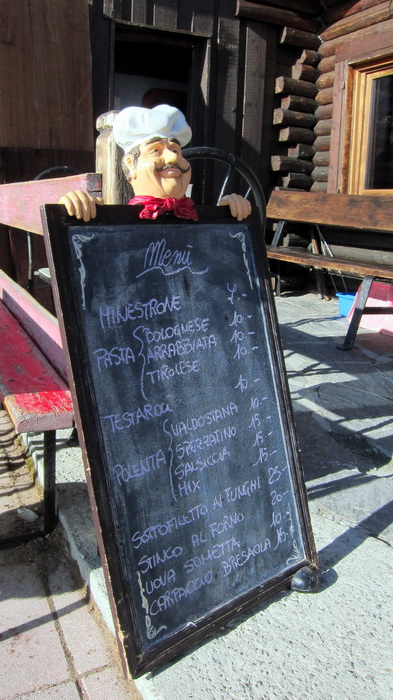 Menù
MINESTRONE
PASTA BOLOGNESE 10.-
ARRABBIATA 10.-
TIROLESE 10.-
TESTAROLI 10.-
POLENTA VALDOSTANA 10.-
SPEZZATINO 15.-
SALSICCIA 15.-
MIX 15.-
SOTTOFILETTO AI FUNGHI 25.-
STINCO AL FORNO 20.-
UOVA SOMETTA 10.-
CARPACCIO BRESAOLA 15.-